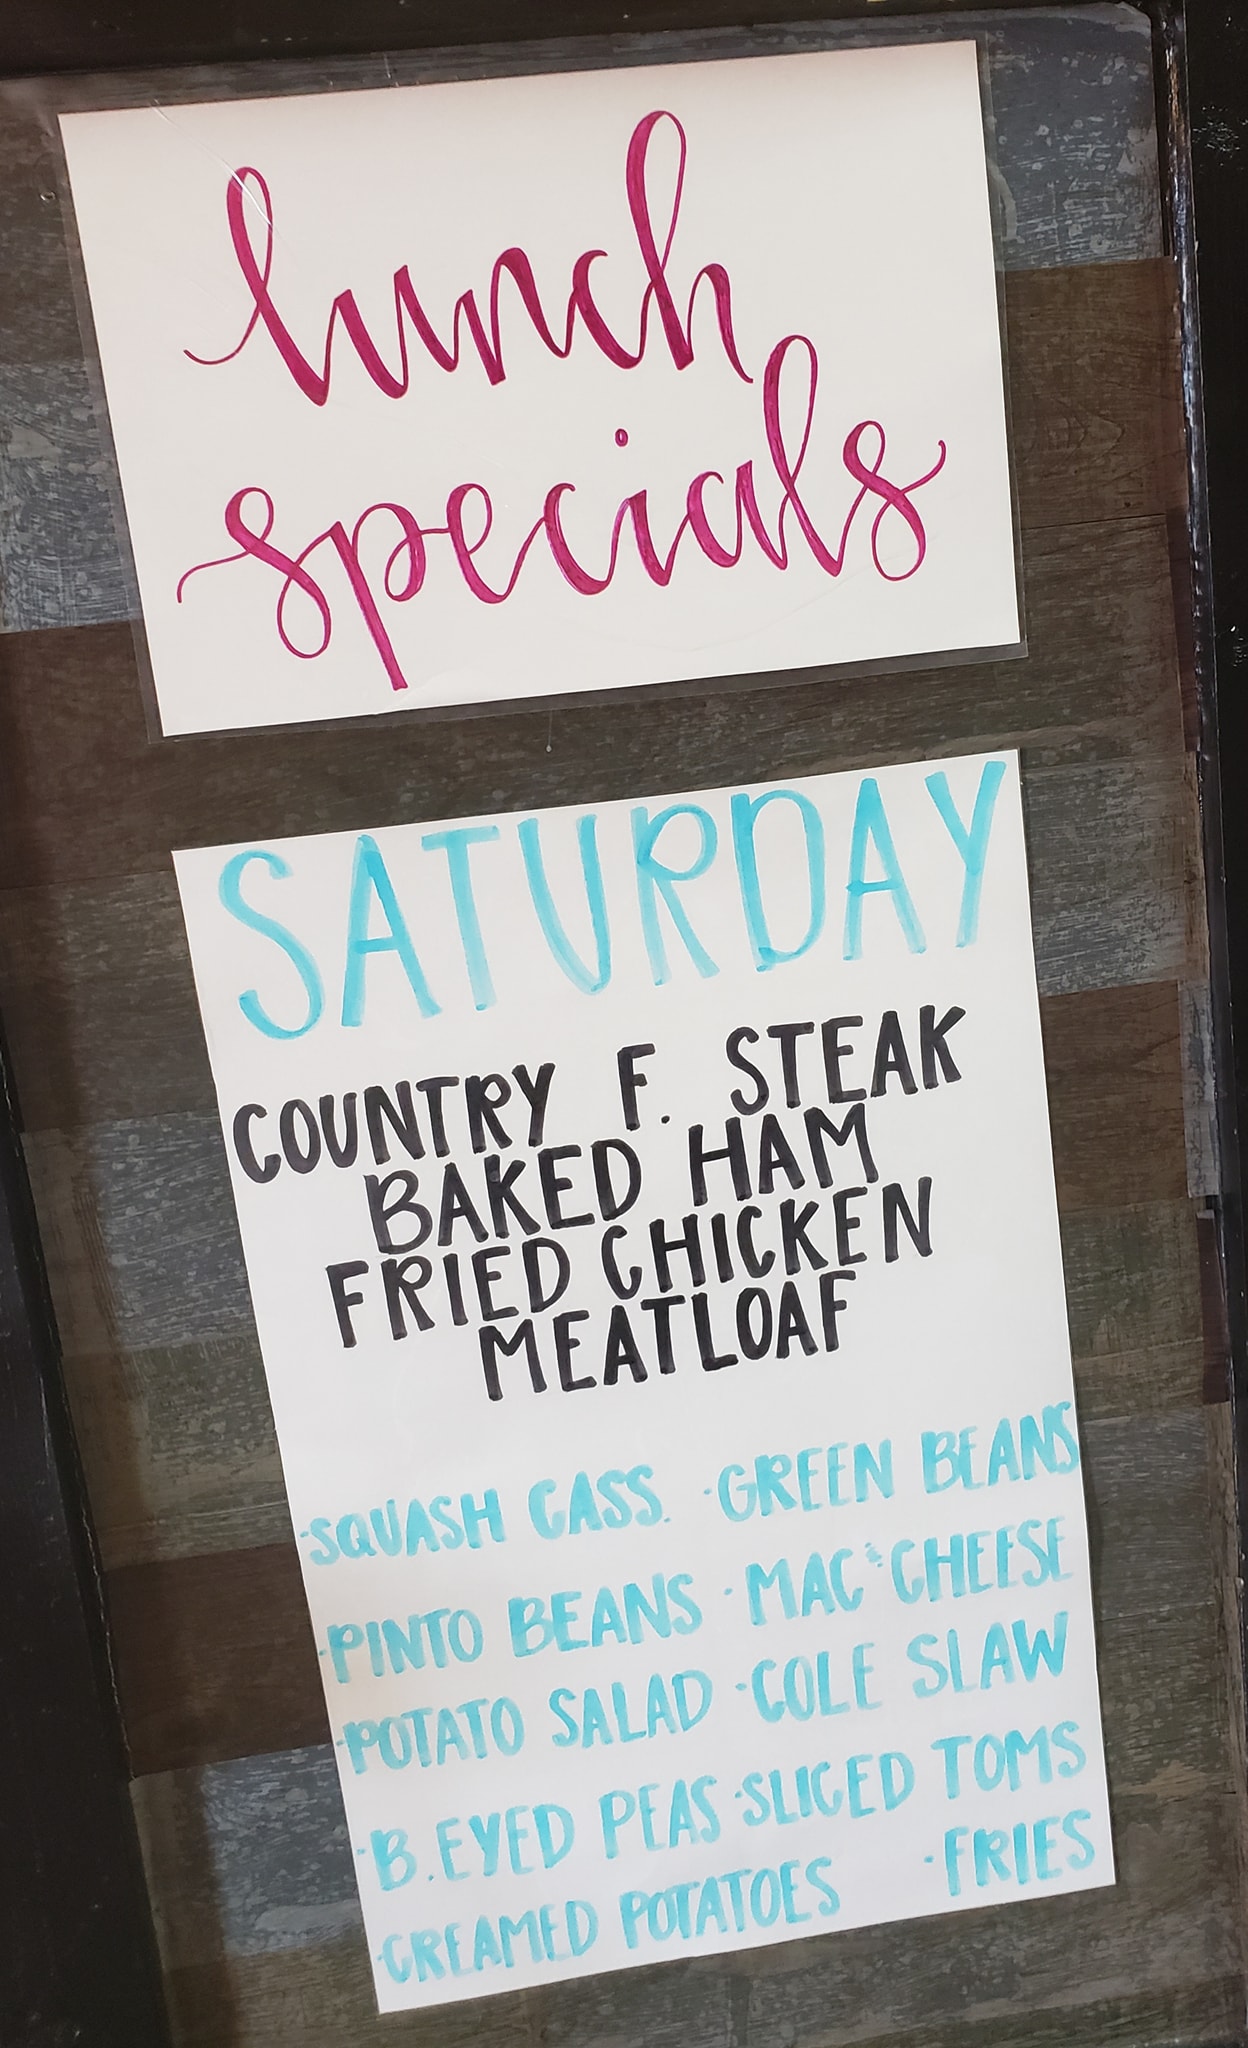 lunch
specials
SATURDAY
COUNTRY F. STEAK
BAKED HAM
FRIED CHICKEN
MEATLOAF
·SQUASH CASS. ·GREEN BEANS
·PINTO BEANS ·MAC & CHEESE
·POTATO SALAD ·COLE SLAW
·B.EYED PEAS ·SLICED TOMS
·CREAMED POTATOES ·FRIES